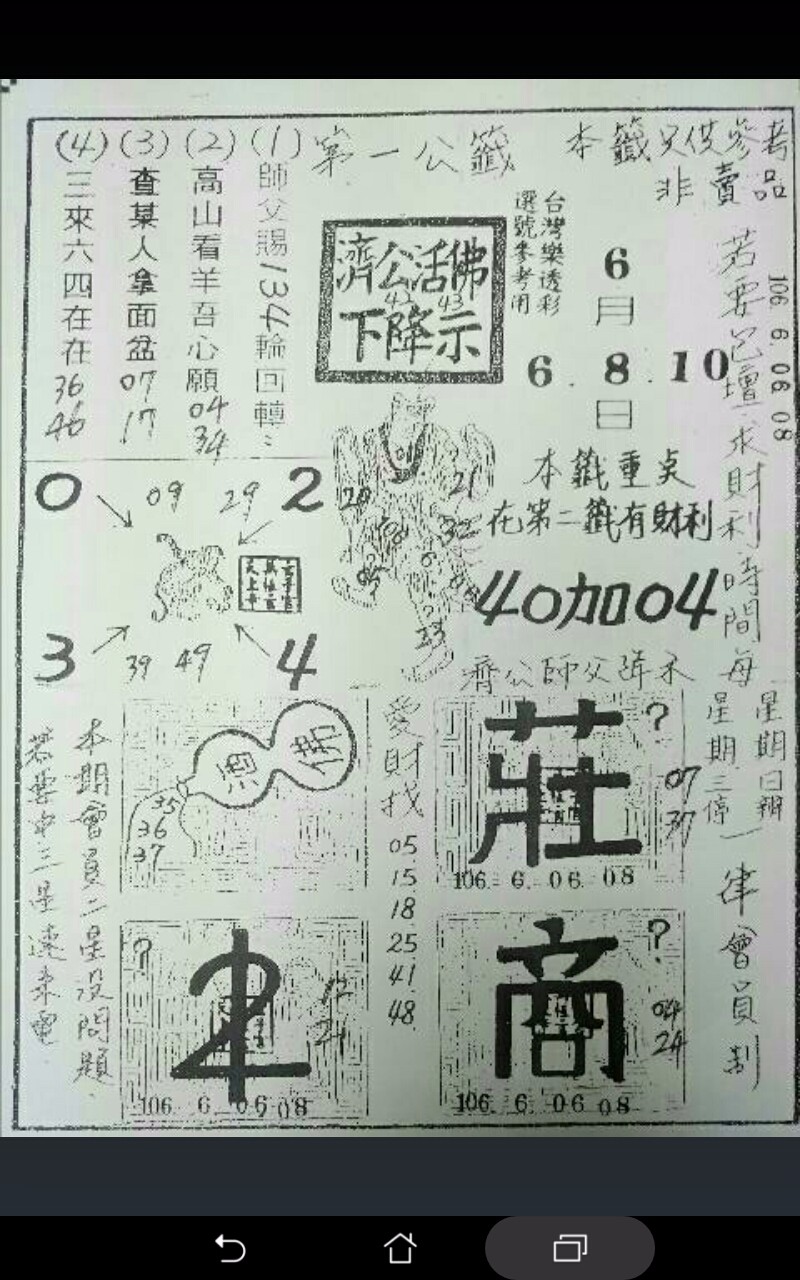 第一公籤
本籤只供參考
非賣品
(1)師父賜134輪回轉:
(2)高山看羊吾心願 04 34
(3)查某人拿面盆 07 17
(4)三來六四在在 36 46
濟公活佛
42 43
下降示
台灣樂透彩
選號參考用
6
月
6.8.10
日
106. 6. 06. 08
若要己壇求財利時間每
星期日
星期三停
一律會員制
0
09 29
2
3
39 49
4
20
21
32
23
本籤重點
在第二籤有財利
40加04
濟公師父降示
酒 佛
35
36
37
愛財找
05
15
18
25
41
48
莊
?
07
37
106. 6. 06. 08
?
12
21
106. 6. 06 08
商
?
04
24
106. 6. 06 08
本期會員二星沒問題
若要中三星速來電